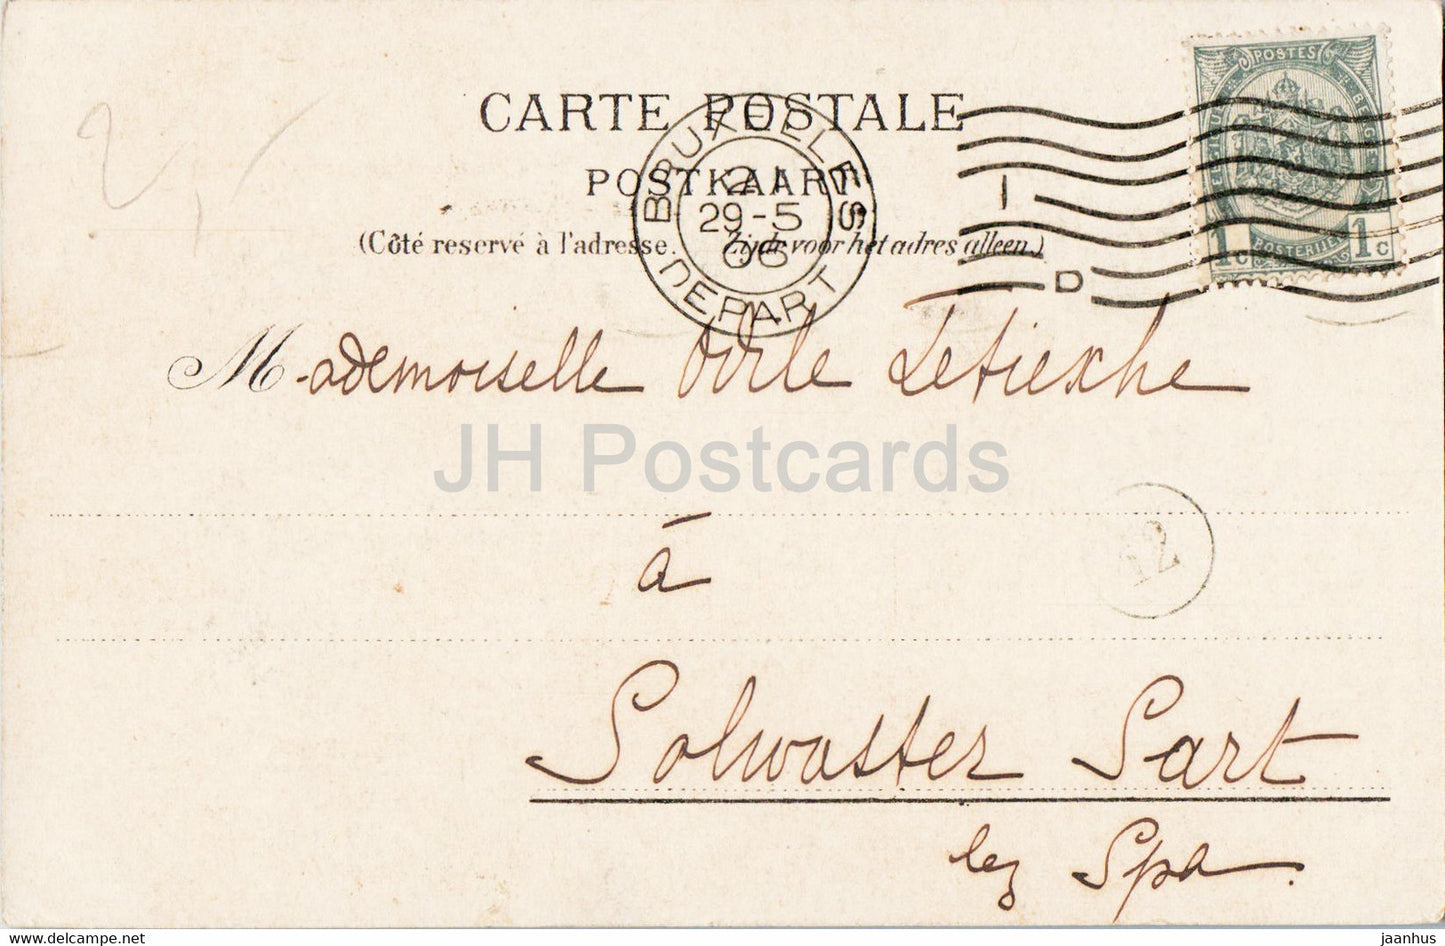 CARTE POSTALE
POSTKAART
(Côté reservé à l'adresse. Zijde voor het adres alleen.)
BRUXELLES
21
29-5
06
DEPART
1
D
POSTES
1c POSTERIJEN 1c
2,-
Mademoiselle Odile Letiexhe
JH Postcards
à
Solwaster Sart
lez Spa.
www.delcampe.net
jaanhus